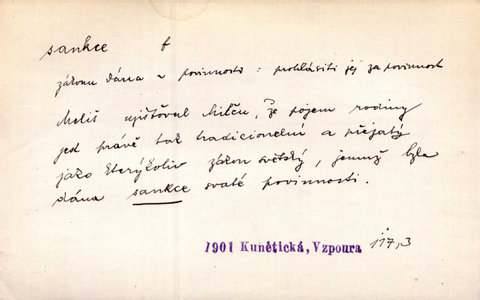 sankce f
zákonu dána v povinnosti : prohlásiti jej za povinnost
Meliš ujišťoval Milču, že pojem rodiny
jest právě tak tradicionelní a přejatý
jako kterýkoliv zákon světský, jemuž byla
dána sankce svaté povinnosti.
1901 Kunětická, Vzpoura 117,3